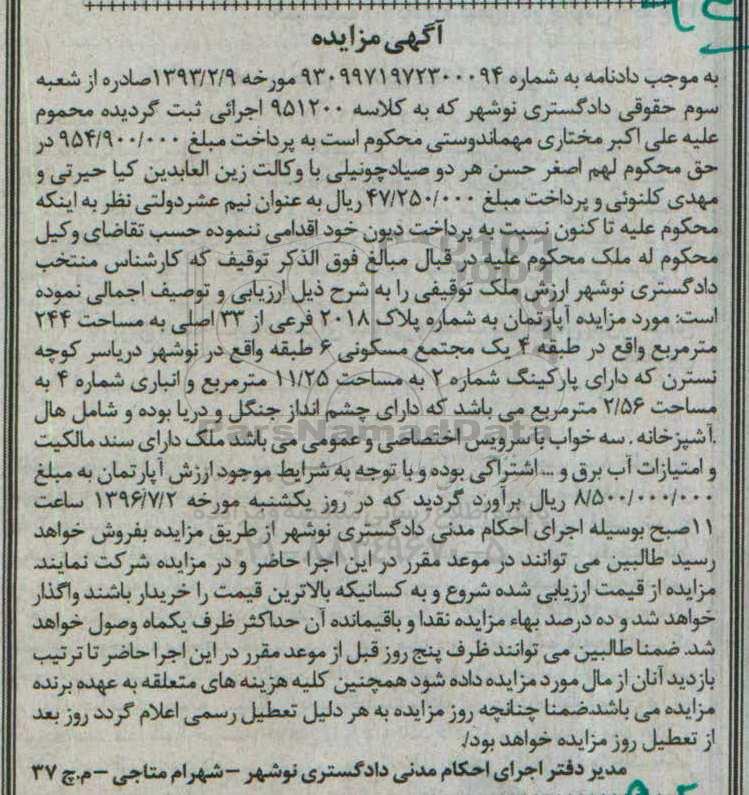 آگهی مزایده
به موجب دادنامه به شماره ۹۳۰۹۹۷۱۹۷۲۳۰۰۰۹۴ مورخه ۱۳۹۳/۲/۹صادره از شعبه
سوم حقوقی دادگستری نوشهر که به کلاسه ۹۵۱۲۰۰ اجرائی ثبت گردیده محموم
علیه علی اکبر مختاری مهماندوستی محکوم است به پرداخت مبلغ ۹۵۴/۹۰۰/۰۰۰ در
حق محکوم لهم اصغر حسن هر دو صیادچونیلی با وکالت زین العابدین کیا حیرتی و
مهدی کلنوئی و پرداخت مبلغ ۴۷/۲۵۰/۰۰۰ ریال به عنوان نیم عشردولتی نظر به اینکه
محکوم علیه تا کنون نسبت به پرداخت دیون خود اقدامی ننموده حسب تقاضای وکیل
محکوم له ملک محکوم علیه در قبال مبالغ فوق الذکر توقیف که کارشناس منتخب
دادگستری نوشهر ارزش ملک توقیفی را به شرح ذیل ارزیابی و توصیف اجمالی نموده
است: مورد مزایده آپارتمان به شماره پلاک ۲۰۱۸ فرعی از ۳۳ اصلی به مساحت ۲۴۴
مترمربع واقع در طبقه ۴ یک مجتمع مسکونی ۶ طبقه واقع در نوشهر دریاسر کوچه
نسترن که دارای پارکینگ شماره ۲ به مساحت ۱۱/۲۵ مترمربع و انباری شماره ۴ به
مساحت ۲/۵۶ مترمربع می باشد که دارای چشم انداز جنگل و دریا بوده و شامل هال
.آشپزخانه . سه خواب با سرویس اختصاصی و عمومی می باشد ملک دارای سند مالکیت
و امتیازات آب برق و ... اشتراکی بوده و با توجه به شرایط موجود ارزش آپارتمان به مبلغ
۸/۵۰۰/۰۰۰/۰۰۰ ریال برآورد گردید که در روز یکشنبه مورخه ۱۳۹۶/۷/۲ ساعت
۱۱صبح بوسیله اجرای احکام مدنی دادگستری نوشهر از طریق مزایده بفروش خواهد
رسید طالبین می توانند در موعد مقرر در این اجرا حاضر و در مزایده شرکت نمایند.
مزایده از قیمت ارزیابی شده شروع و به کسانیکه بالاترین قیمت را خریدار باشند واگذار
خواهد شد و ده درصد بهاء مزایده نقدا و باقیمانده آن حداکثر ظرف یکماه وصول خواهد
شد. ضمنا طالبین می توانند ظرف پنج روز قبل از موعد مقرر در این اجرا حاضر تا ترتیب
بازدید آنان از مال مورد مزایده داده شود همچنین کلیه هزینه های متعلقه به عهده برنده
مزایده می باشد.ضمنا چنانچه روز مزایده به هر دلیل تعطیل رسمی اعلام گردد روز بعد
از تعطیل روز مزایده خواهد بود/.
مدیر دفتر اجرای احکام مدنی دادگستری نوشهر – شهرام متاجی – م.چ ۳۷
ParsNamadData